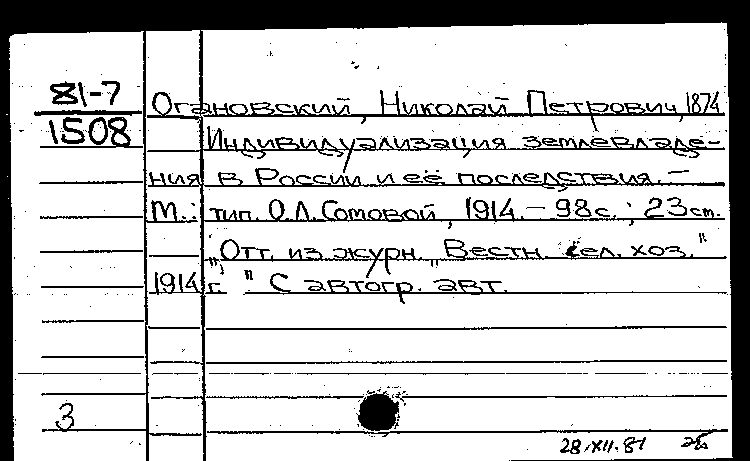 81-7
1508
Огановский, Николай Петрович, 1874
Индивидуализация землевладе-
ния в России и её последствия. –
М.: тип. О.Л. Сомовой, 1914. – 98 с.; 23 см.
"Отт. из журн. „Вестн. сел. хоз."
1914 г." С автогр. авт.
3
28.XII.81